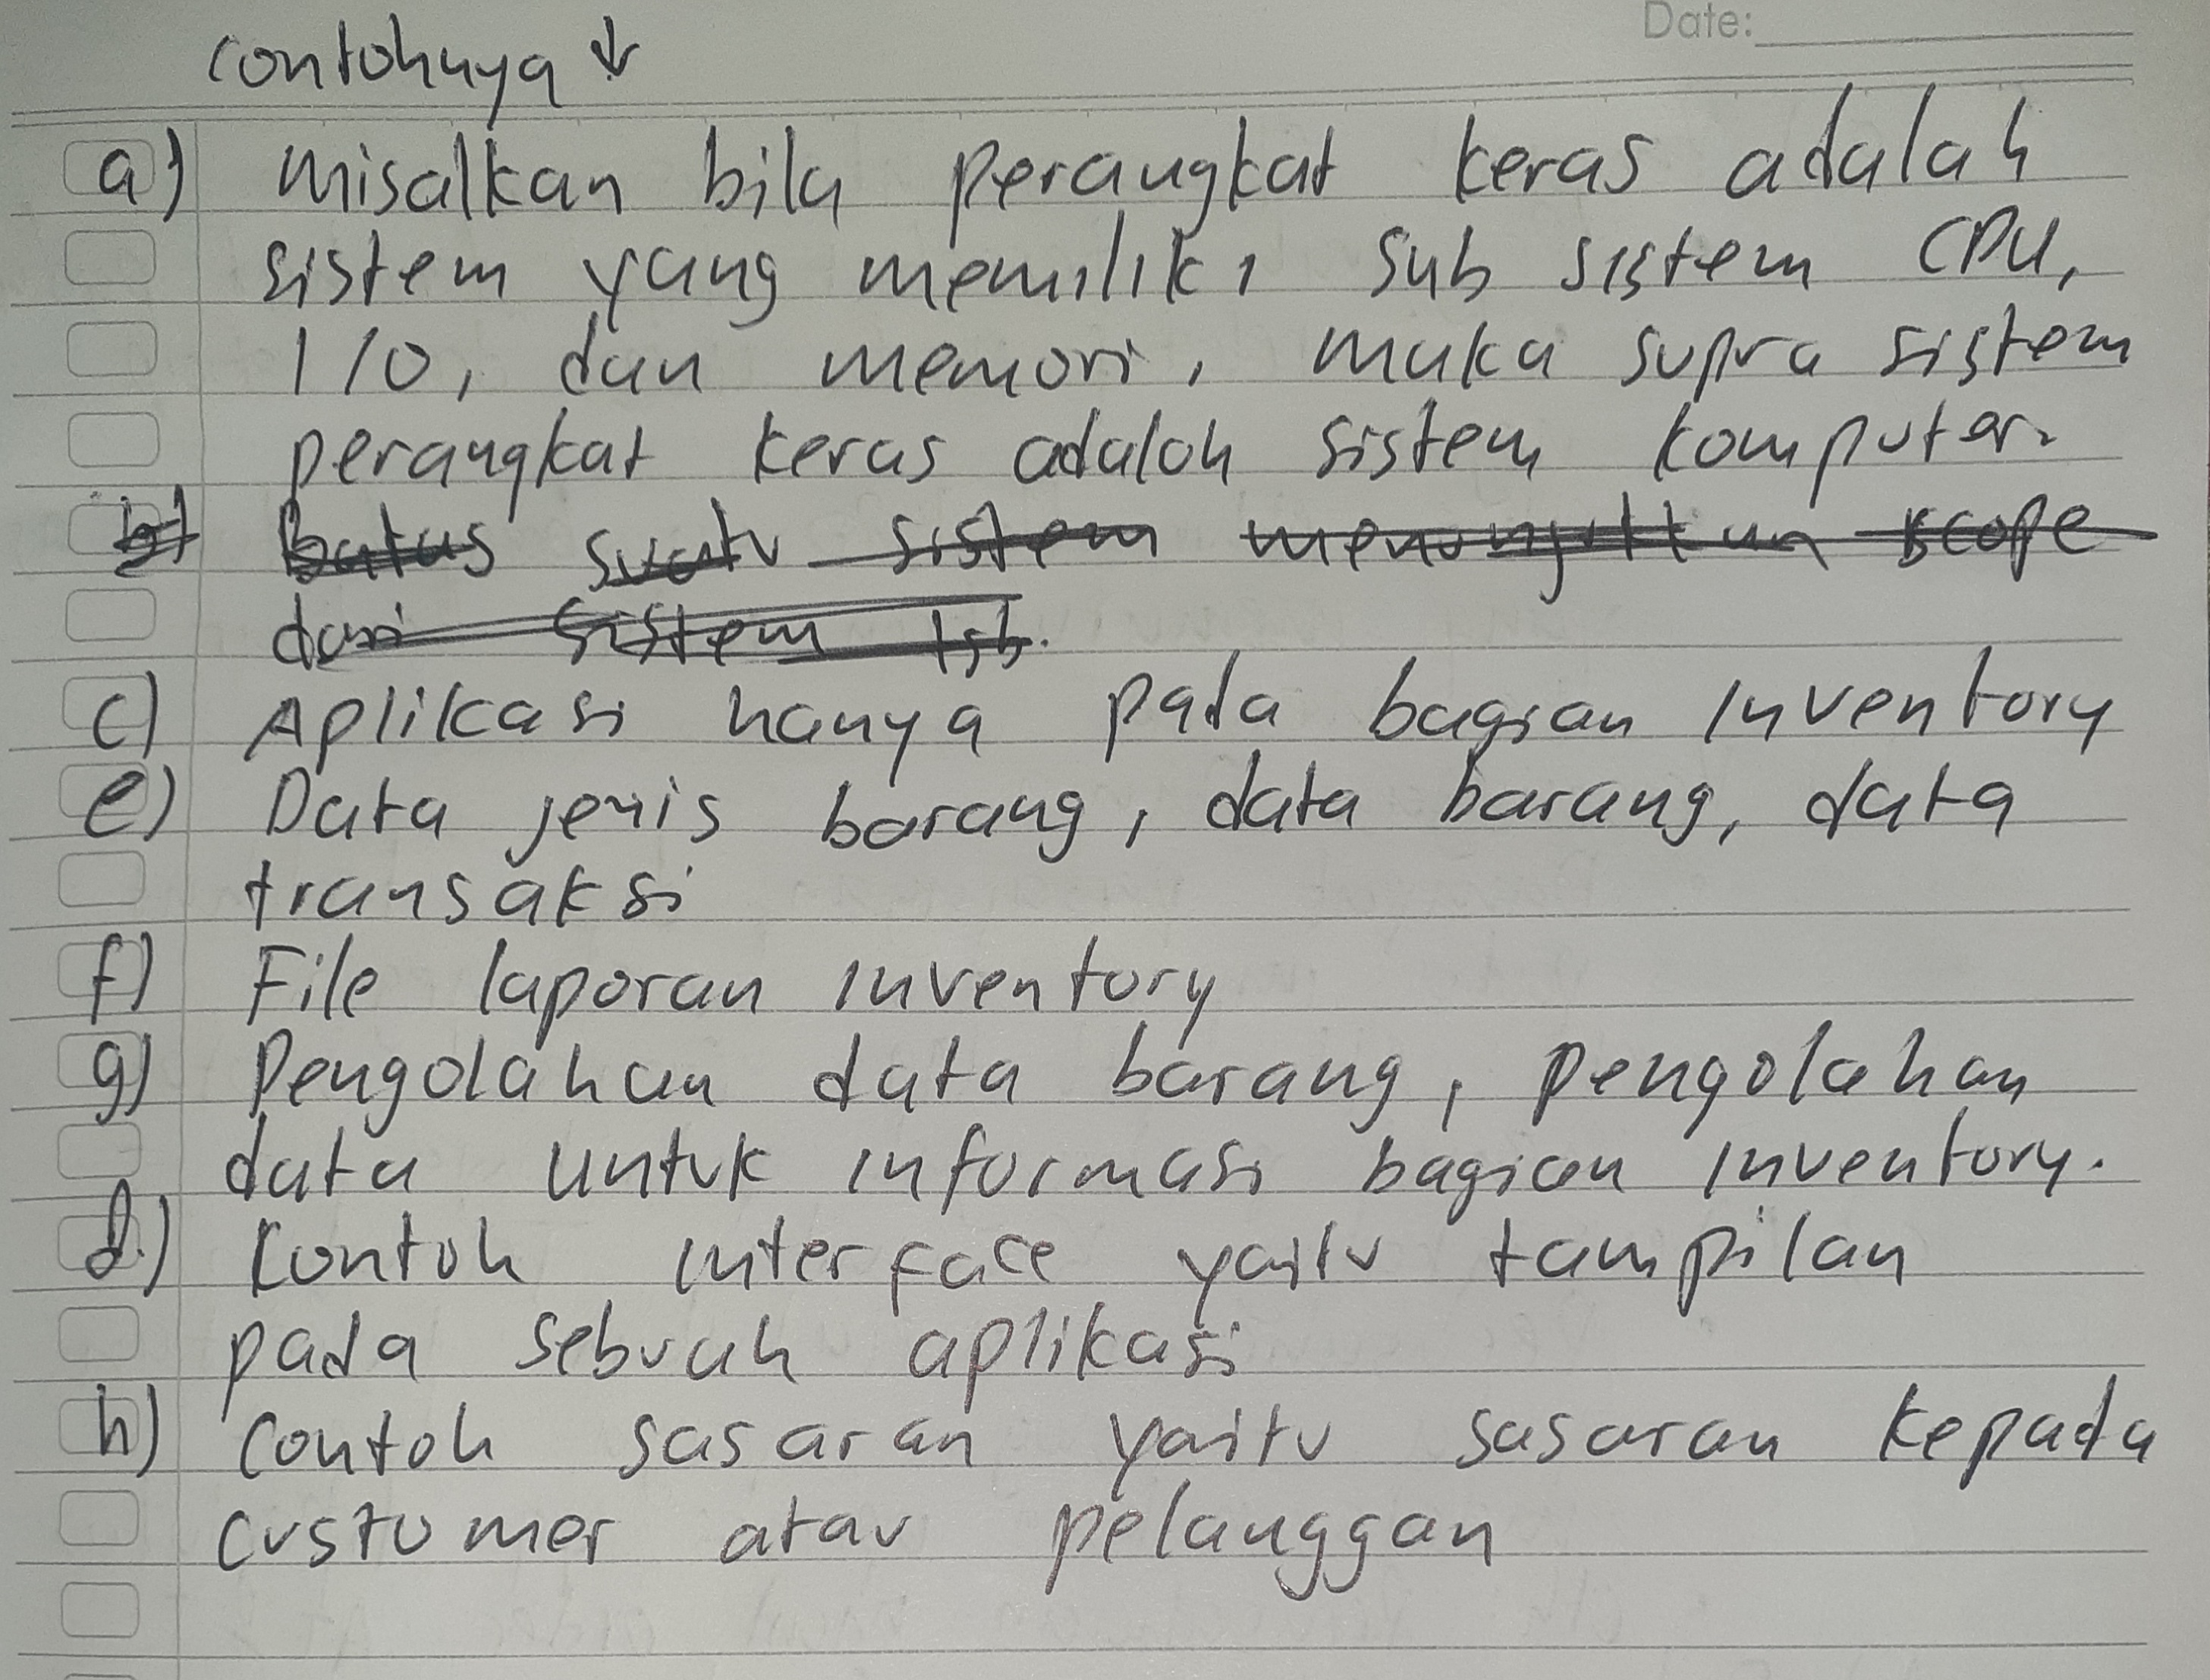 Date:
contohnya ↓
a) misalkan bila perangkat keras adalah
sistem yang memiliki sub sistem CPU,
I/O, dan memori, maka supra sistem
perangkat keras adalah sistem komputer.
b) Batas suatu sistem menunjukkan scope
dari sistem tsb.
c) Aplikasi hanya pada bagian Inventory
e) Data jenis barang, data barang, data
transaksi
f) File laporan inventory
g) Pengolahan data barang, pengolahan
data untuk informasi bagian inventory.
d.) Contoh interface yaitu tampilan
pada sebuah aplikasi
h) Contoh sasaran yaitu sasaran kepada
customer atau pelanggan